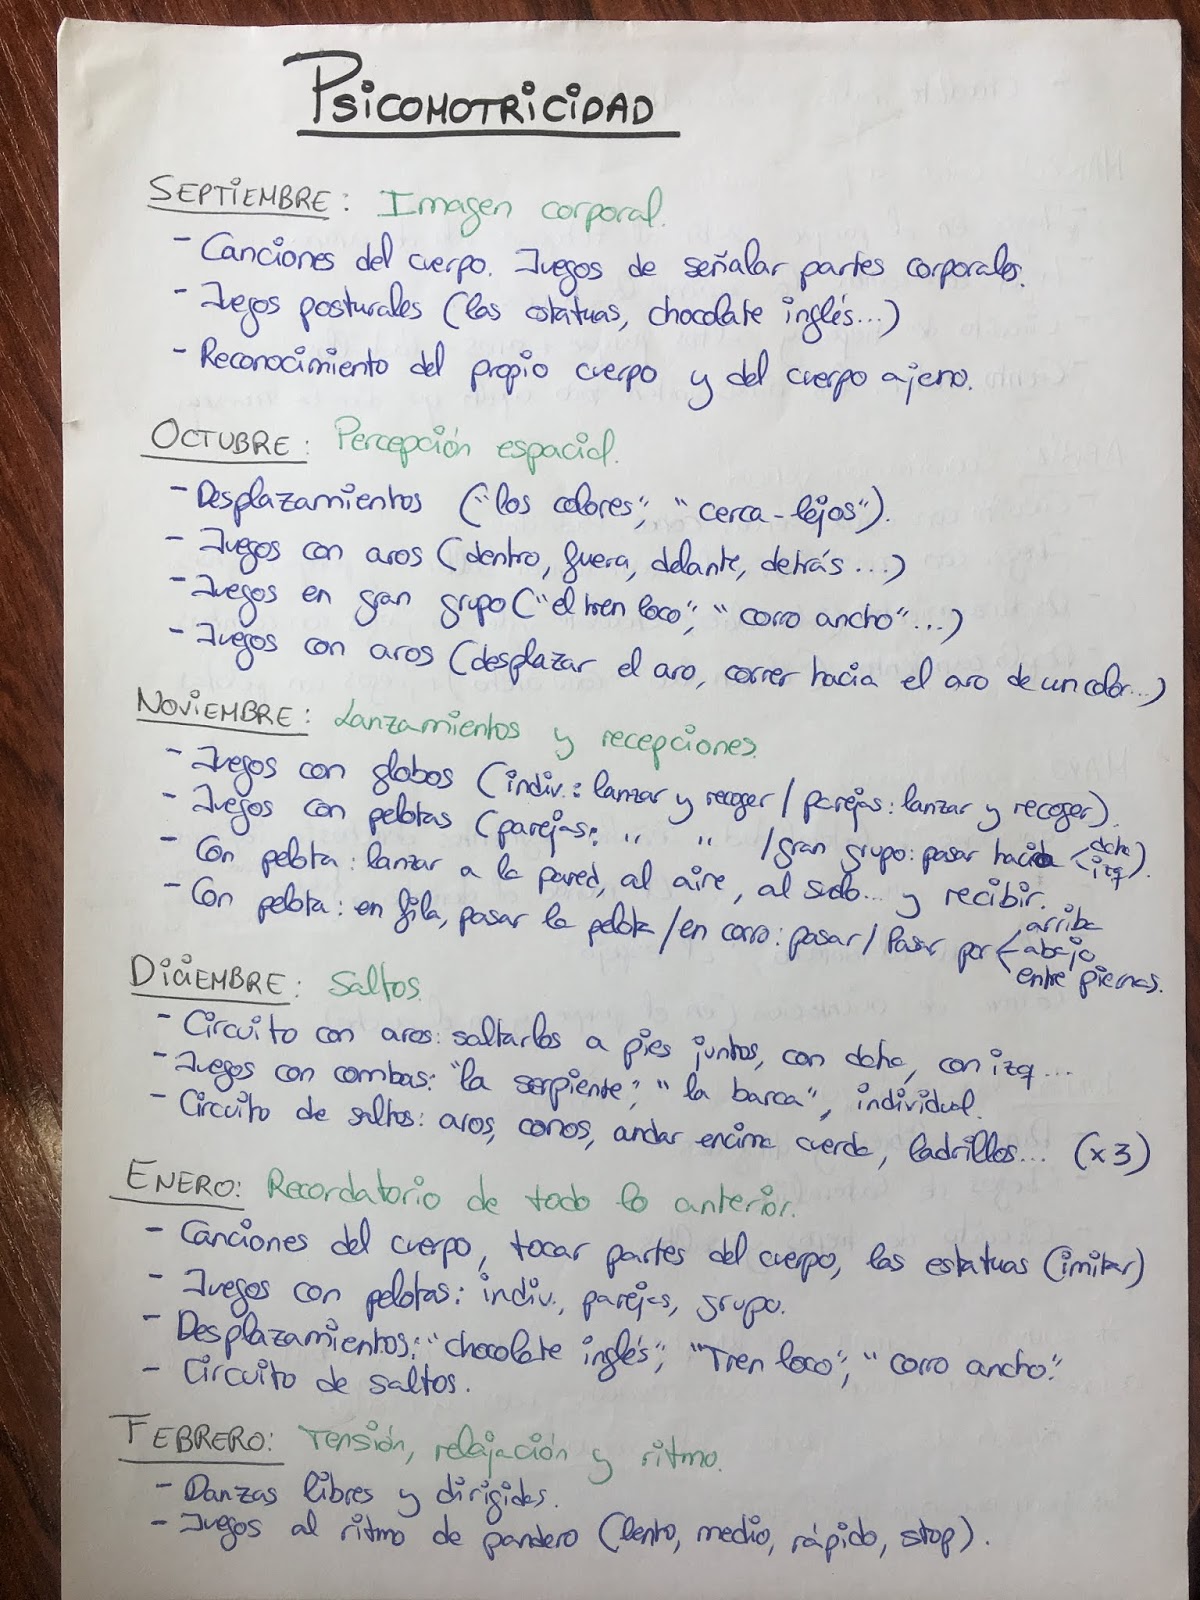 PSICOMOTRICIDAD
SEPTIEMBRE: Imagen corporal.
- Canciones del cuerpo. Juegos de señalar partes corporales.
- Juegos posturales (las estatuas, chocolate inglés...)
- Reconocimiento del propio cuerpo y del cuerpo ajeno.
OCTUBRE: Percepción espacial.
- Desplazamientos ("los colores", "cerca-lejos").
- Juegos con aros (dentro, fuera, delante, detrás...)
- Juegos en gran grupo ("el tren loco", "corro ancho"...)
- Juegos con aros (desplazar el aro, correr hacia el aro de un color...)
NOVIEMBRE: Lanzamientos y recepciones.
- Juegos con globos (indiv.: lanzar y recoger / parejas: lanzar y recoger).
- Juegos con pelotas (parejas: " " / gran grupo: pasar hacia < dcha izq).
- Con pelota: lanzar a la pared, al aire, al suelo... y recibir.
- Con pelota: en fila, pasar la pelota / en corro: pasar / Pasar por < arriba
abajo
entre piernas.
DICIEMBRE: Saltos.
- Circuito con aros: saltarlos a pies juntos, con dcha, con izq...
- Juegos con combas: "la serpiente", "la barca", individual.
- Circuito de saltos: aros, conos, andar encima cuerda, ladrillos... (x3)
ENERO: Recordatorio de todo lo anterior.
- Canciones del cuerpo, tocar partes del cuerpo, las estatuas (imitar)
- Juegos con pelotas: indiv., parejas, grupo.
- Desplazamientos: "chocolate inglés", "Tren loco", "corro ancho".
- Circuito de saltos.
FEBRERO: Tensión, relajación y ritmo.
- Danzas libres y dirigidas.
- Juegos al ritmo de pandero (lento, medio, rápido, stop).